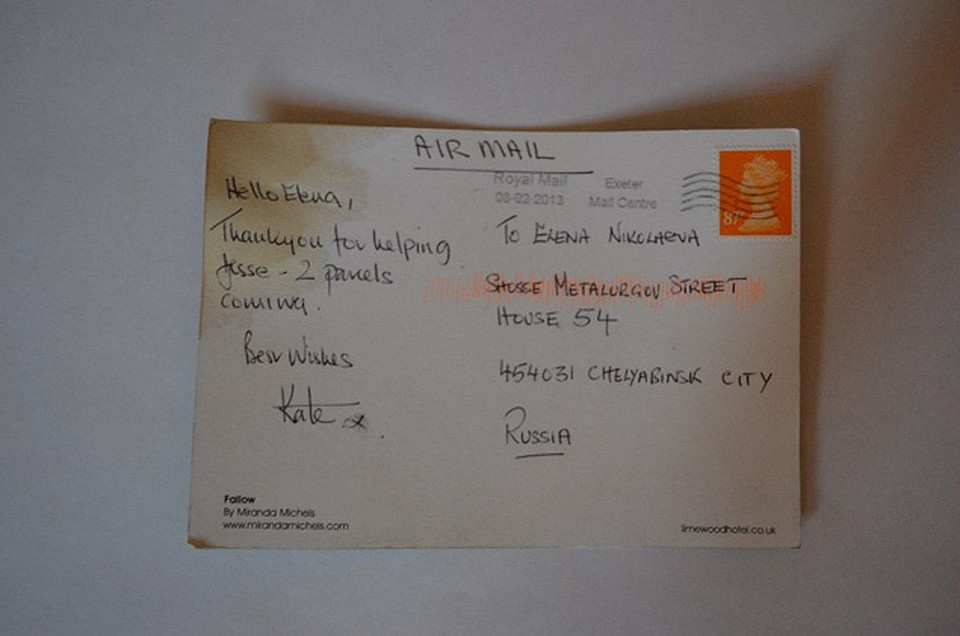 AIR MAIL
Royal Mail
08-02-2013
Exeter
Mail Centre
87P
Hello Elena,
Thankyou for helping
Jesse - 2 parcels
coming.
Best Wishes
Kate x.
To ELENA NIKOLAEVA
SHOSSE METALURGOV STREET
HOUSE 54
454031 CHELYABINSK CITY
RUSSIA
Fallow
By Miranda Michels
www.mirandamichels.com
limewoodhotel.co.uk